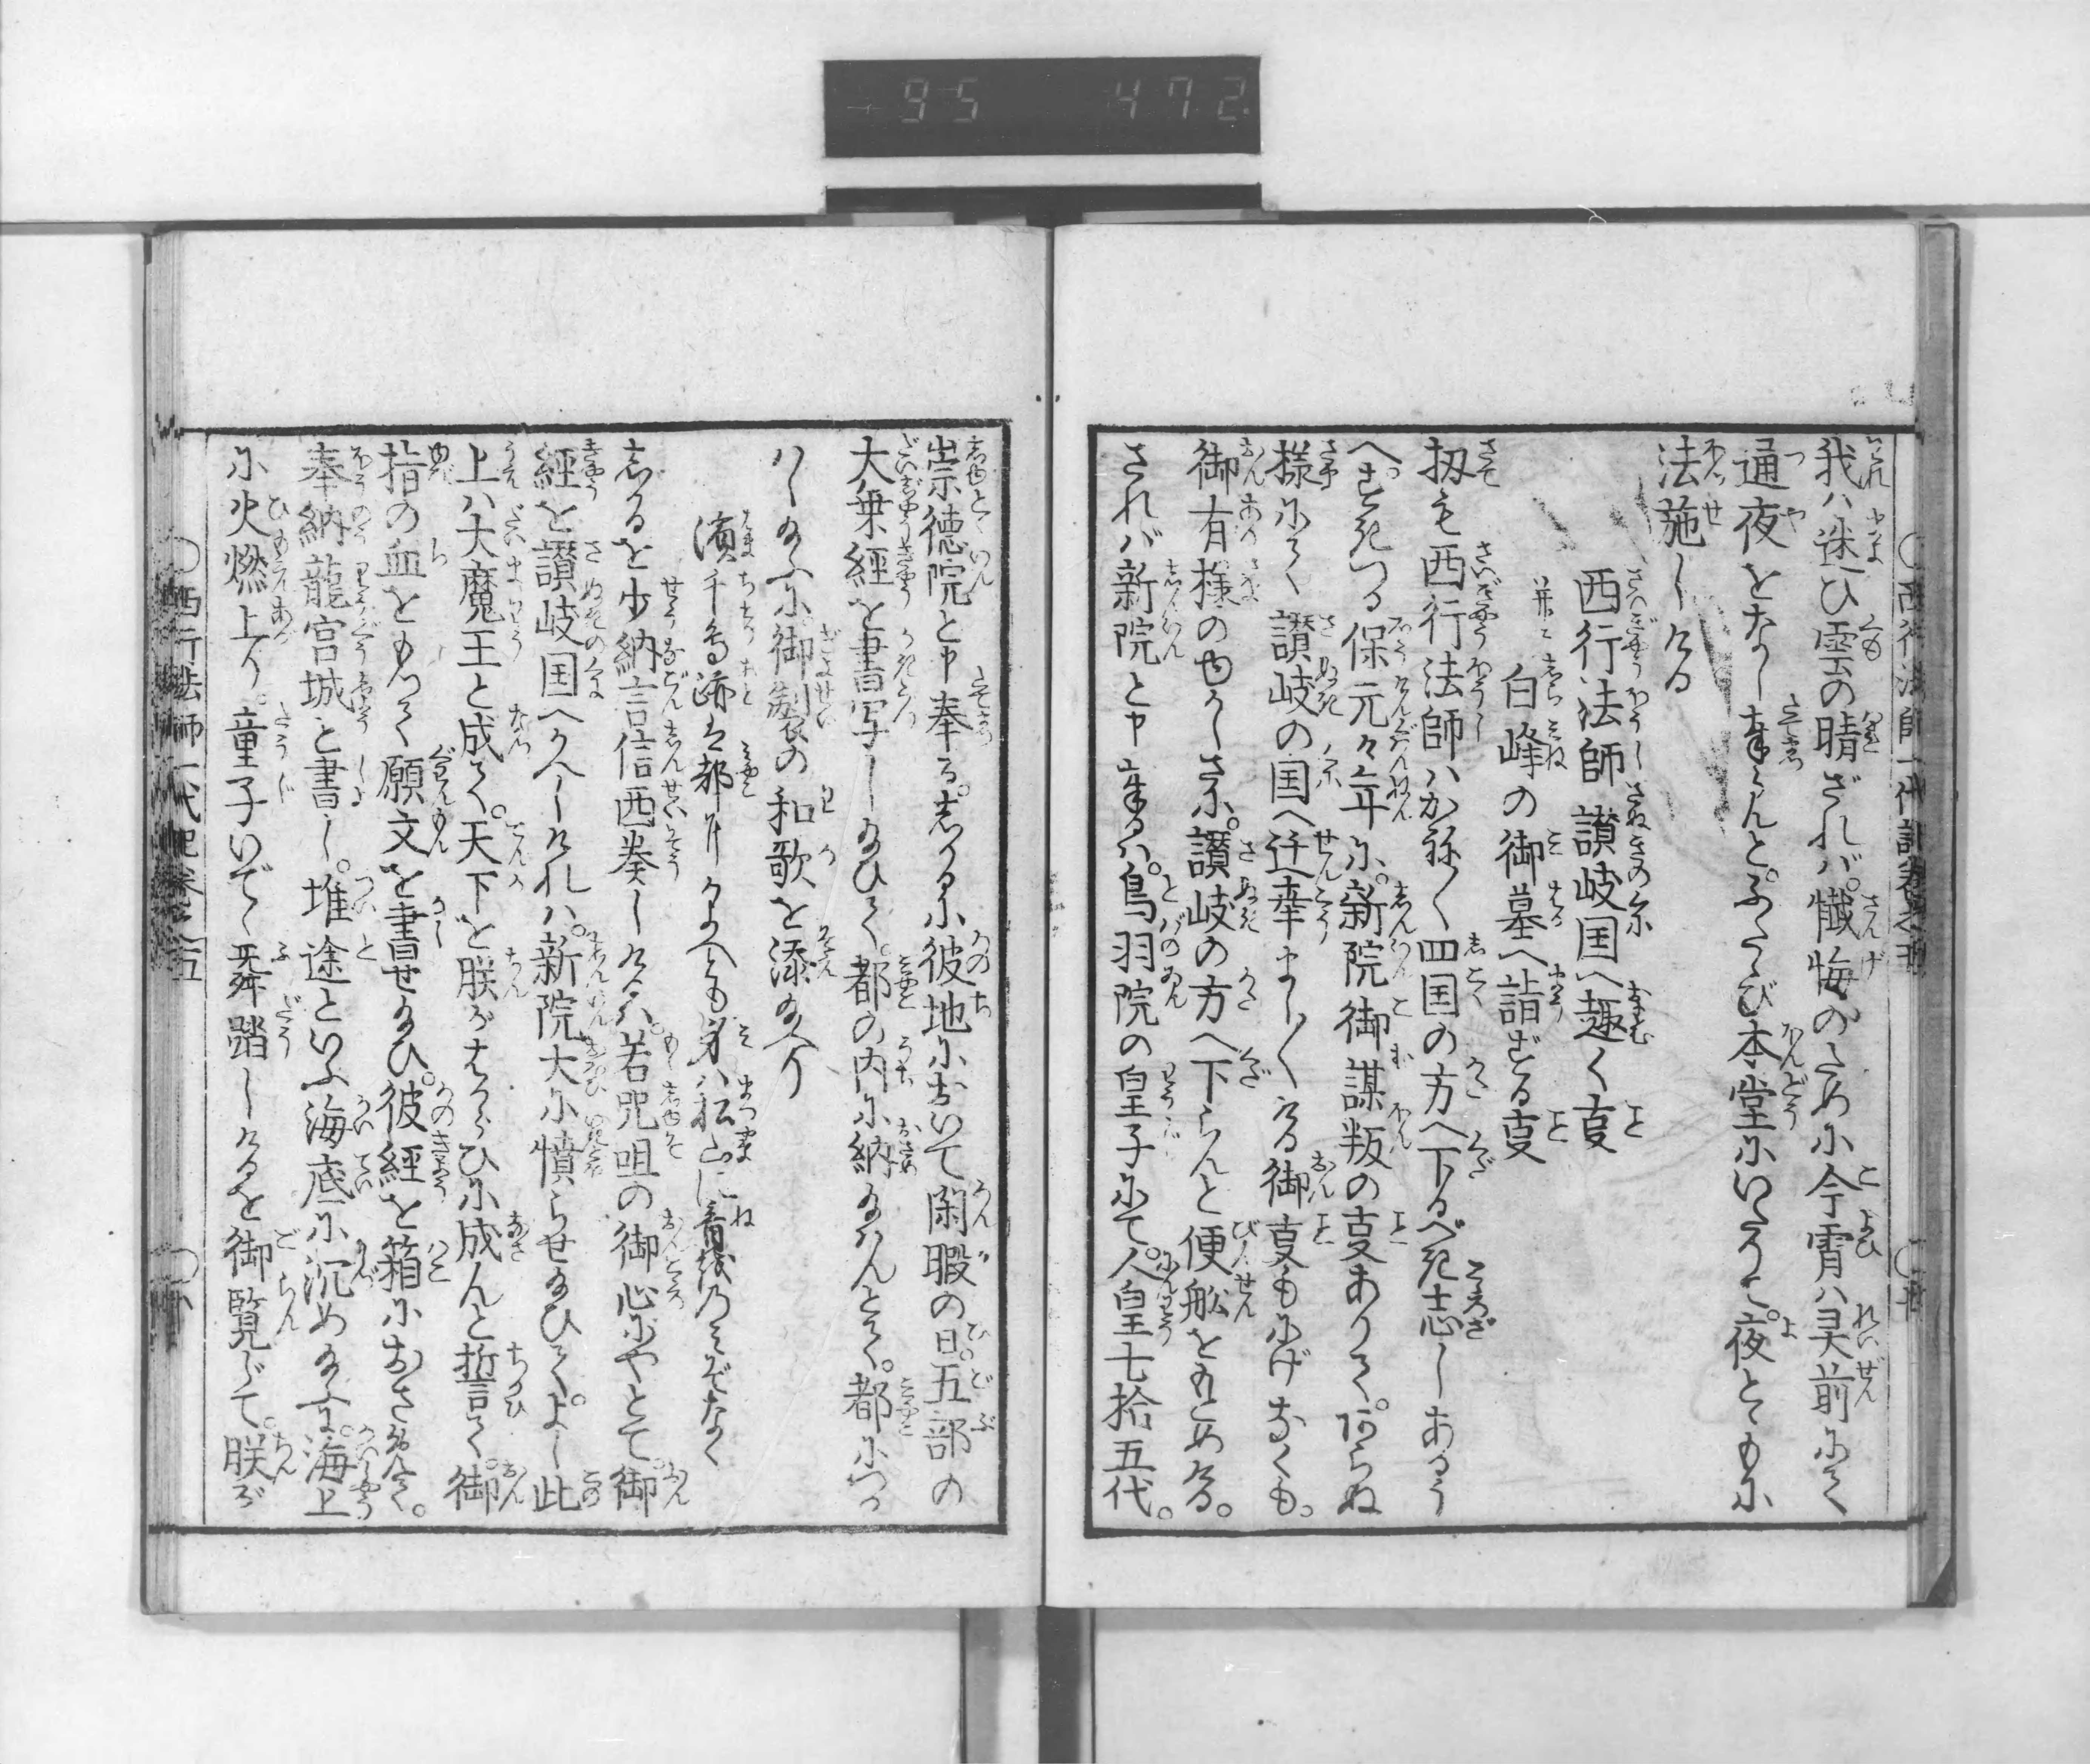 95 472
西行法師一代記巻之五
我ハ迷ひ雲の晴ざれバ。懺悔のために今宵ハ灵前にて
通夜をなし奉らんと。ふたゝび本堂にいたりて。夜とともに
法施しける
西行法師讃岐国へ趣く事
并ニ白峰の御墓へ詣ずる事
扨も西行法師ハかねて四国の方へ下るべき志しありう
へ。すぎつる保元々年に。新院御謀叛の事ありて。あらぬ
様にて讃岐の国へ迁幸まし〳〵ける御事もにげなくも。
御有様の中〳〵しさに。讃岐の方へ下らんと便舩をもとめける。
されバ新院と申奉るハ。鳥羽院の皇子にて。人皇七拾五代。
崇徳院と申奉る。しかるに彼地におゐて閑暇の日。五部の
大乗経を書写し給ひて。都の内に納給ハんとて。都につか
ハし給ふに。御製の和歌を添給へり
濱千鳥跡は都にかよへども身ハ松山に音をのミぞなく
しかるを少納言信西奏しけるハ。若咒咀の御心にやとて。御
経を讃岐国へかへしけれバ。新院大に憤らせ給ひて。よし此
上ハ大魔王と成て。天下を朕がはからひに成んと誓て。御
指の血をもつて願文を書せ給ひ。彼経を箱におさめ給ひて。
奉納龍宮城と書し。堆途といふ海底に沉め給ふに。海上
に火燃上り。童子いでゝ舞踏しけるを御覧じて。朕が
西行法師一代記巻之五